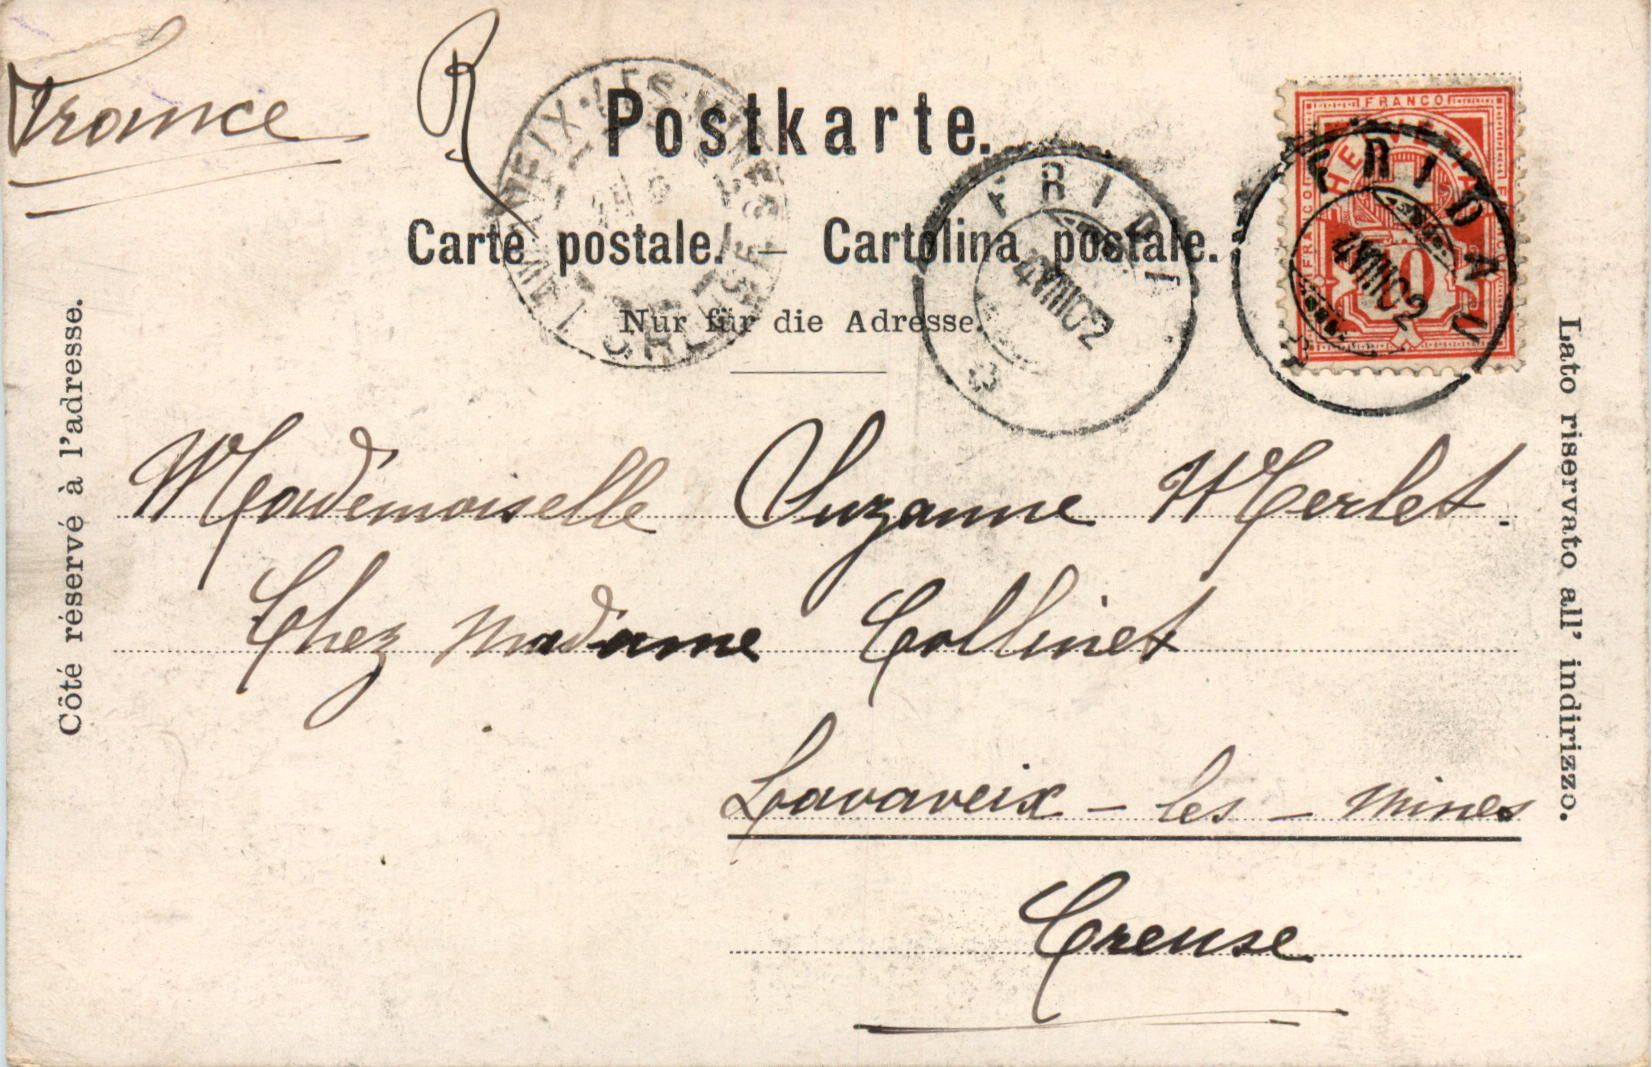 France
R
Postkarte.
Carte postale. — Cartolina postale.
Nur für die Adresse.
Côté réservé à l'adresse.
Lato riservato all' indirizzo.
LAVAVEIX-LES-MINES
CREUSE
FRIDAU
4 VIII 02
FRIDAU
4 VIII 02
FRANCO
HELVETIA
FRANCO
10
Mademoiselle Suzanne Merlet.
Chez madame Collinet
Lavaveix - les - mines
Creuse